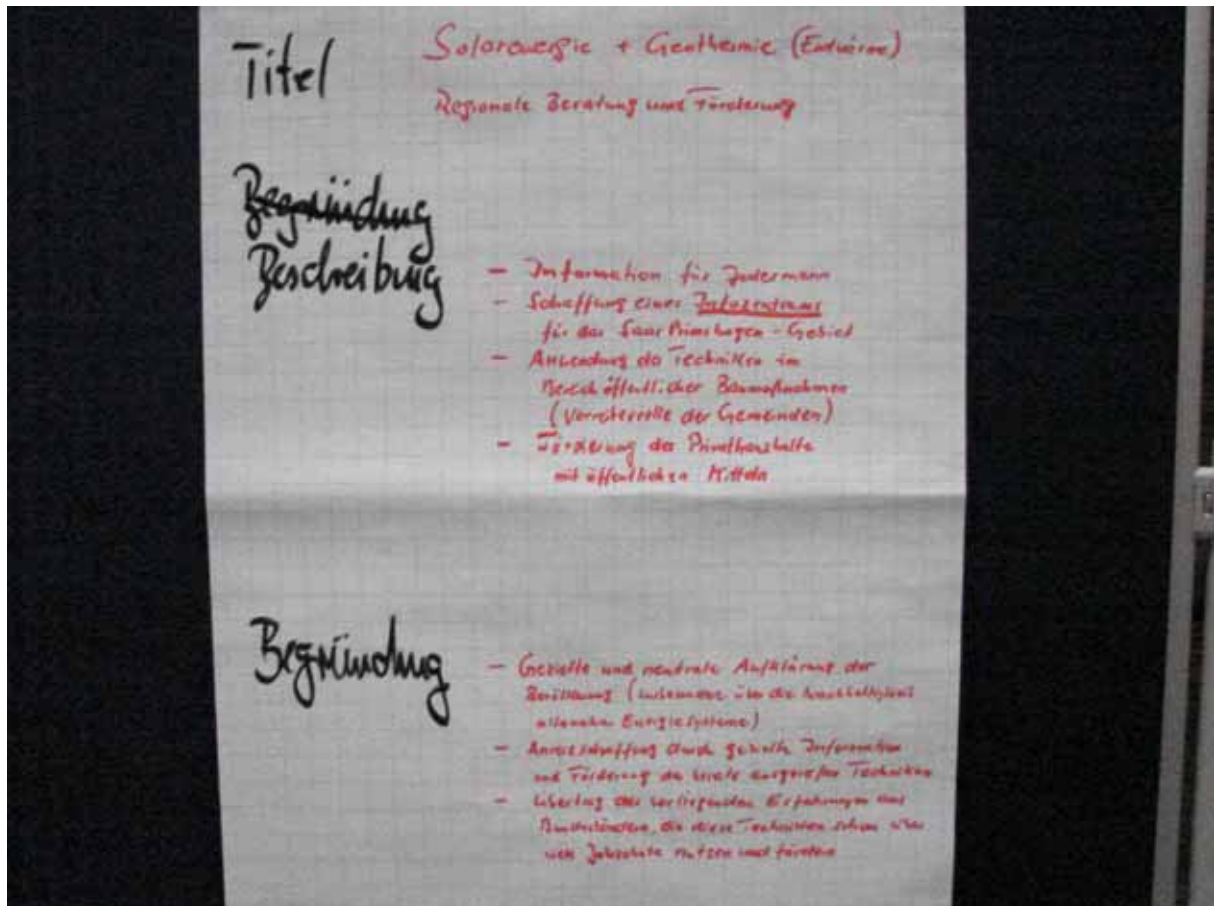 Titel
Solarenergie + Geothermie (Erdwärme)
Regionale Beratung und Förderung
Begründung
Beschreibung
- Information für Jedermann
- Schaffung eines Infozentrums
für das Saar Primsbogen - Gebiet
- Anwendung der Techniken im
Bereich öffentlicher Baumaßnahmen
(Vorreiterrolle der Gemeinden)
- Förderung der Privathaushalte
mit öffentlichen Mitteln
Begründung
- Gezielte und neutrale Aufklärung der
Bevölkerung ( über die Nachhaltigkeit
Energiesysteme)
- Anreizschaffung durch gezielte Information
und Förderung der bereits ausgereiften Techniken
- Übertrag der vorliegenden Erfahrungen aus
Bundesländern, die diese Techniken schon über
viele Jahrzehnte nutzen und fördern